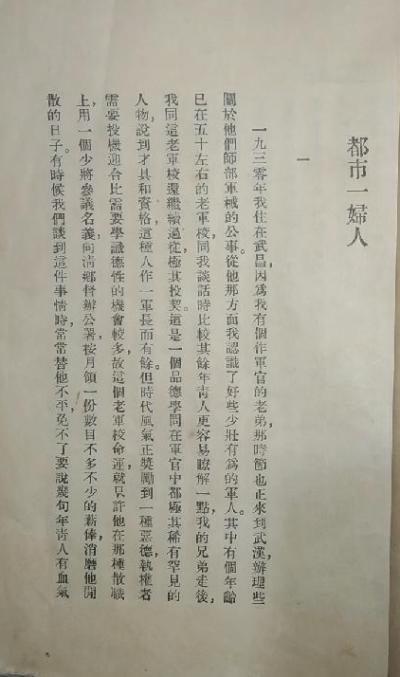 都市一婦人
一
一九三零年我住在武昌，因爲我有個作軍官的老弟，那時節也正來到武漢，辦理些
關於他們師部軍械的公事。從他那方面我認識了好些少壯有爲的軍人。其中有個年齡
已在五十左右的老軍校，同我談話時比較其餘年青人更容易瞭解一點，我的兄弟走後，
我同這老軍校還繼續過從，極其投契。這是一個品德學問在軍官中都極其稀有罕見的
人物，說到才具和資格，這種人作一軍長而有餘。但時代風氣正奬勵到一種惡德，執權者
需要投機迎合比需要學識德性的機會較多，故這個老軍校命運就只許他在那種散職
上，用一個少將參議名義，向清鄉督辦公署，按月領一份數目不多不少的薪俸，消磨他閒
散的日子。有時候我們談到這件事情時，常常替他不平，免不了要說幾句年青人有血氣